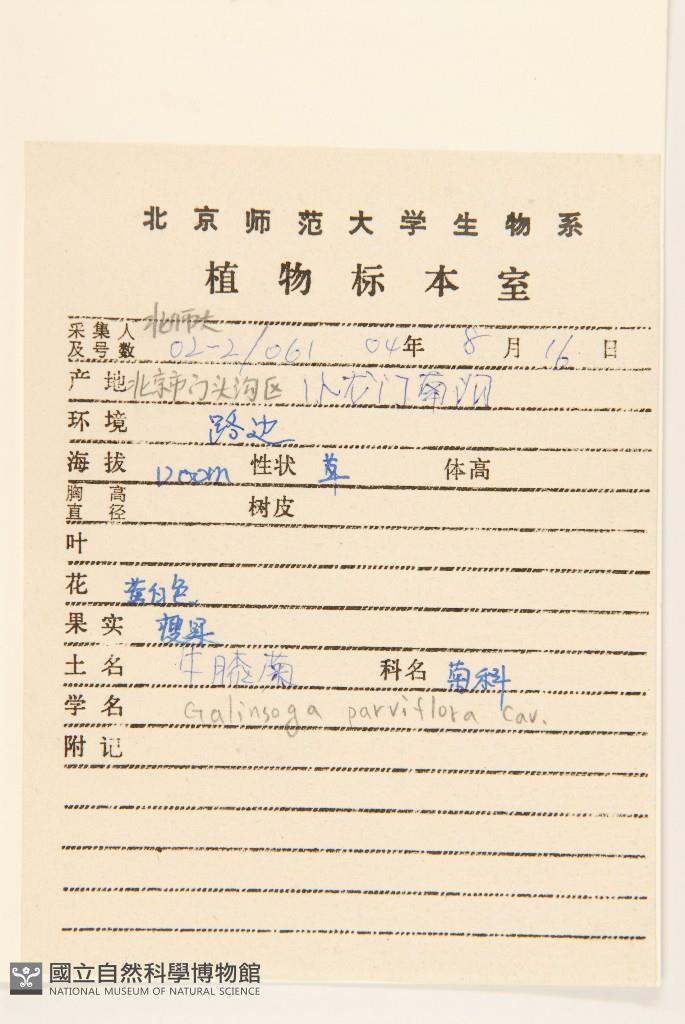 北京师范大学生物系
植物标本室
采集人及号数 北师大 02-2/061 04年 8月 16日
产地 北京市门头沟区 小龙门南沟
环境 路边
海拔 1200m 性状 草 体高
胸高直径 树皮
叶
花 黄白色
果实 瘦果
土名 牛膝菊 科名 菊科
学名 Galinsoga parviflora Cav.
附记
國立自然科學博物館
NATIONAL MUSEUM OF NATURAL SCIENCE